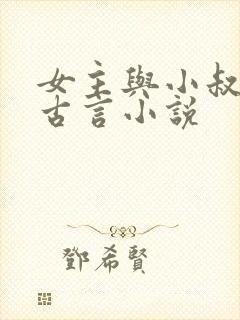 女主與小叔
古言小說
鄧希賢